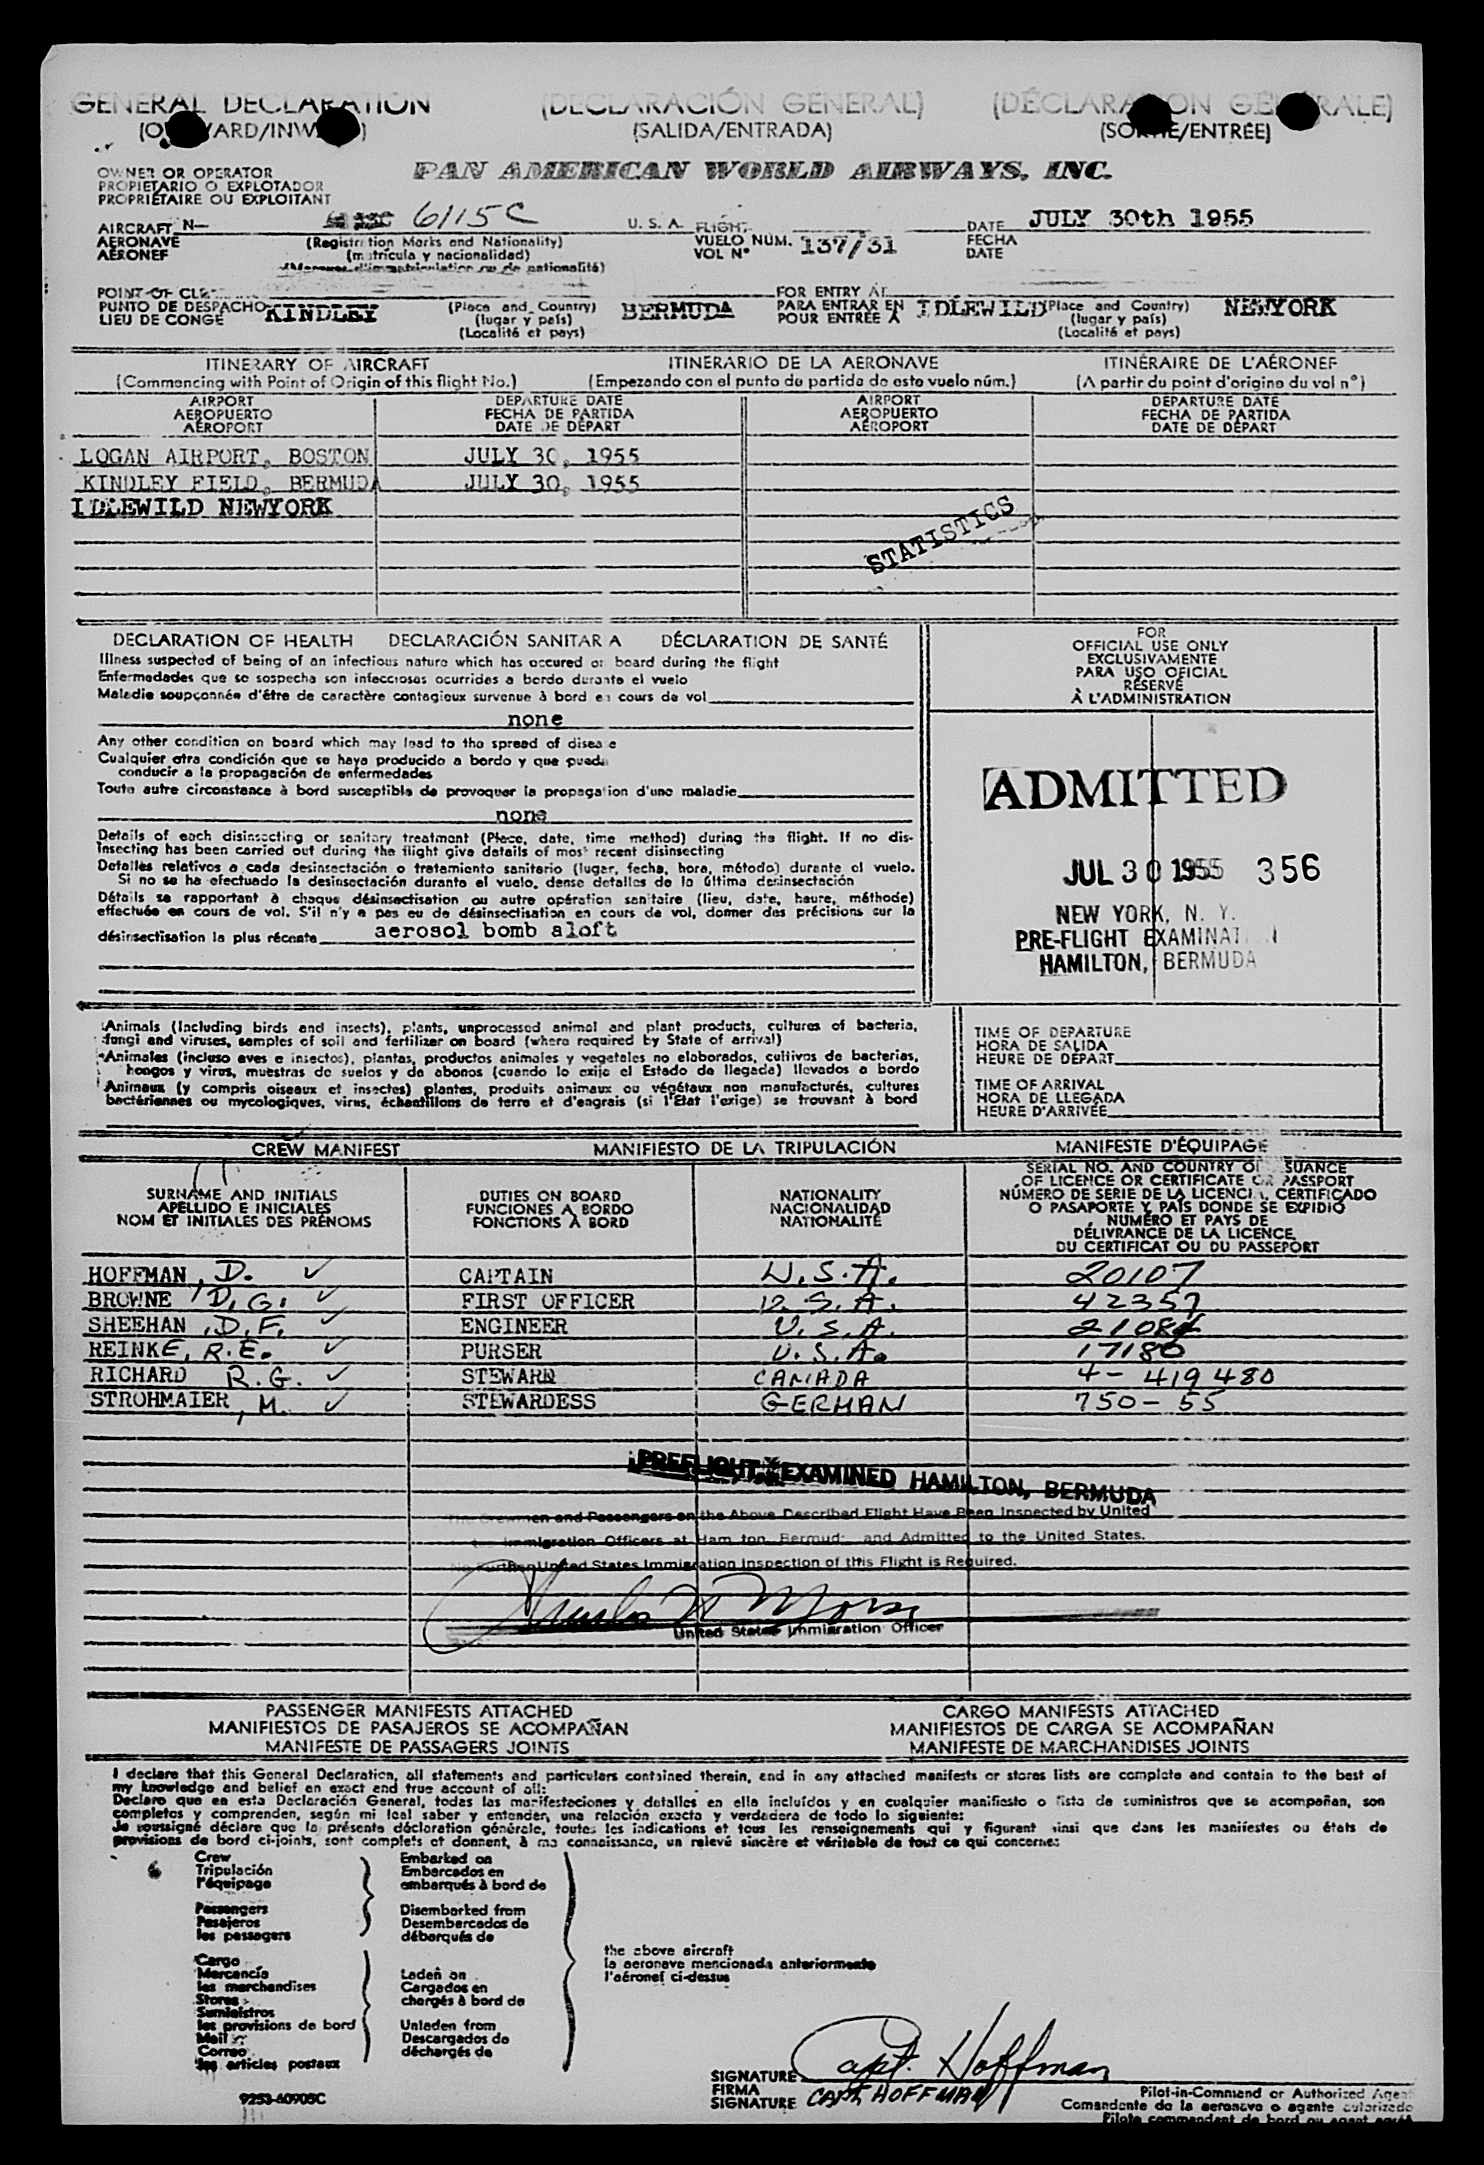 GENERAL DECLARATION (DECLARACIÓN GENERAL) (DÉCLARATION GÉNÉRALE)
(OUTWARD/INWARD) (SALIDA/ENTRADA) (SORTIE/ENTRÉE)
OWNER OR OPERATOR PAN AMERICAN WORLD AIRWAYS, INC.
PROPIETARIO O EXPLOTADOR
PROPRIÉTAIRE OU EXPLOITANT
AIRCRAFT N— 6115C U. S. A. FLIGHT DATE JULY 30th 1955
AERONAVE (Registration Marks and Nationality) VUELO NUM. 137/31 FECHA
AÉRONEF (matrícula y nacionalidad) VOL Nº DATE
(Marques d'immatriculation ou de nationalité)
POINT OF FOR ENTRY AT
PUNTO DE DESPACHO KINDLEY (Place and Country) BERMUDA PARA ENTRAR EN IDLEWILD (Place and Country) NEWYORK
LIEU DE CONGÉ (lugar y país) POUR ENTRÉE À (lugar y país)
(Localité et pays) (Localité et pays)
ITINERARY OF AIRCRAFT ITINERARIO DE LA AERONAVE ITINÉRAIRE DE L'AÉRONEF
(Commencing with Point of Origin of this flight No.) (Empezando con el punto de partida de este vuelo núm.) (A partir du point d'origine du vol nº)
AIRPORT DEPARTURE DATE AIRPORT DEPARTURE DATE
AEROPUERTO FECHA DE PARTIDA AEROPUERTO FECHA DE PARTIDA
AÉROPORT DATE DE DÉPART AÉROPORT DATE DE DÉPART
LOGAN AIRPORT, BOSTON JULY 30, 1955
KINDLEY FIELD, BERMUDA JULY 30, 1955
IDLEWILD NEWYORK
STATISTICS
DECLARATION OF HEALTH DECLARACIÓN SANITARIA DÉCLARATION DE SANTÉ
Illness suspected of being of an infectious nature which has occured on board during the flight
Enfermedades que se sospecha son infecciosas ocurridas a bordo durante el vuelo
Maladie soupçonnée d'être de caractère contagieux survenue à bord en cours de vol
none
Any other condition on board which may lead to the spread of disease
Cualquier otra condición que se haya producido a bordo y que pueda
conducir a la propagación de enfermedades
Toute autre circonstance à bord susceptible de provoquer la propagation d'une maladie
none
Details of each disinsecting or sanitary treatment (Place, date, time method) during the flight. If no dis-
insecting has been carried out during the flight give details of most recent disinsecting
Detalles relativos a cada desinsectación o tratamiento sanitario (lugar, fecha, hora, método) durante el vuelo.
Si no se ha efectuado la desinsectación durante el vuelo, dense detalles de la última desinsectación
Détails se rapportant à chaque désinsectisation ou autre opération sanitaire (lieu, date, heure, méthode)
effectuée en cours de vol. S'il n'y a pas eu de désinsectisation en cours de vol, donner des précisions sur la
désinsectisation la plus récente aerosol bomb aloft
FOR
OFFICIAL USE ONLY
EXCLUSIVAMENTE
PARA USO OFICIAL
RÉSERVÉ
À L'ADMINISTRATION
ADMITTED
JUL 30 1955 356
NEW YORK, N. Y.
PRE-FLIGHT EXAMINATION
HAMILTON, BERMUDA
Animals (Including birds and insects), plants, unprocessed animal and plant products, cultures of bacteria,
fungi and viruses, samples of soil and fertilizer on board (where required by State of arrival)
Animales (incluso aves e insectos), plantas, productos animales y vegetales no elaborados, cultivos de bacterias,
hongos y virus, muestras de suelos y de abonos (cuando lo exija el Estado de llegada) llevados a bordo
Animaux (y compris oiseaux et insectes) plantes, produits animaux ou végétaux non manufacturés, cultures
bactériennes ou mycologiques, virus, échantillons de terre et d'engrais (si l'État l'exige) se trouvant à bord
TIME OF DEPARTURE
HORA DE SALIDA
HEURE DE DÉPART
TIME OF ARRIVAL
HORA DE LLEGADA
HEURE D'ARRIVÉE
CREW MANIFEST MANIFIESTO DE LA TRIPULACIÓN MANIFESTE D'ÉQUIPAGE
SURNAME AND INITIALS
APELLIDO E INICIALES
NOM ET INITIALES DES PRÉNOMS
DUTIES ON BOARD
FUNCIONES A BORDO
FONCTIONS À BORD
NATIONALITY
NACIONALIDAD
NATIONALITÉ
SERIAL NO. AND COUNTRY OF ISSUANCE
OF LICENCE OR CERTIFICATE OR PASSPORT
NÚMERO DE SERIE DE LA LICENCIA, CERTIFICADO
O PASAPORTE Y PAÍS DONDE SE EXPIDIÓ
NUMÉRO ET PAYS DE
DÉLIVRANCE DE LA LICENCE,
DU CERTIFICAT OU DU PASSEPORT
HOFFMAN, D. ✓ CAPTAIN U.S.A. 20107
BROWNE, D.G. ✓ FIRST OFFICER U.S.A. 42357
SHEEHAN, D.F. ✓ ENGINEER U.S.A. 21084
REINKE, R.E. ✓ PURSER U.S.A. 17180
RICHARD R.G. ✓ STEWARD CANADA 4-419480
STROHMAIER, M. ✓ STEWARDESS GERMAN 750-55
PREFLIGHT EXAMINED HAMILTON, BERMUDA
The Crewmen and Passengers on the Above Described Flight Have Been Inspected by United
Immigration Officers at Hamilton Bermuda and Admitted to the United States.
No Further United States Immigration Inspection of this Flight is Required.
United States Immigration Officer
PASSENGER MANIFESTS ATTACHED CARGO MANIFESTS ATTACHED
MANIFIESTOS DE PASAJEROS SE ACOMPAÑAN MANIFIESTOS DE CARGA SE ACOMPAÑAN
MANIFESTE DE PASSAGERS JOINTS MANIFESTE DE MARCHANDISES JOINTS
I declare that this General Declaration, all statements and particulars contained therein, and in any attached manifests or stores lists are complete and contain to the best of
my knowledge and belief an exact and true account of all:
Declaro que en esta Declaración General, todas las manifestaciones y detalles en ella incluídos y en cualquier manifiesto o lista de suministros que se acompañan, son
completos y comprenden, según mi leal saber y entender, una relación exacta y verdadera de todo lo siguiente:
Je soussigné déclare que la présente déclaration générale, toutes les indications et tous les renseignements qui y figurent ainsi que dans les manifestes ou états de
provisions de bord ci-joints, sont complets et donnent, à ma connaissance, un relevé sincère et véritable de tout ce qui concerne:
6 Crew
Tripulación
l'équipage
Passengers
Pasajeros
les passagers
Cargo
Mercancía
les marchandises
Stores
Suministros
les provisions de bord
Mail
Correo
les articles postaux
Embarked on
Embarcados en
embarqués à bord de
Disembarked from
Desembarcados de
débarqués de
Laden on
Cargados en
chargés à bord de
Unladen from
Descargados de
déchargés de
the above aircraft
la aeronave mencionada anteriormente
l'aéronef ci-dessus
SIGNATURE Capt. Hoffman
FIRMA
SIGNATURE CAPT. HOFFMAN
Pilot-in-Command or Authorized Agent
Comandante de la aeronave o agente autorizado
Pilote commandant de bord ou agent agréé
9253-60905C